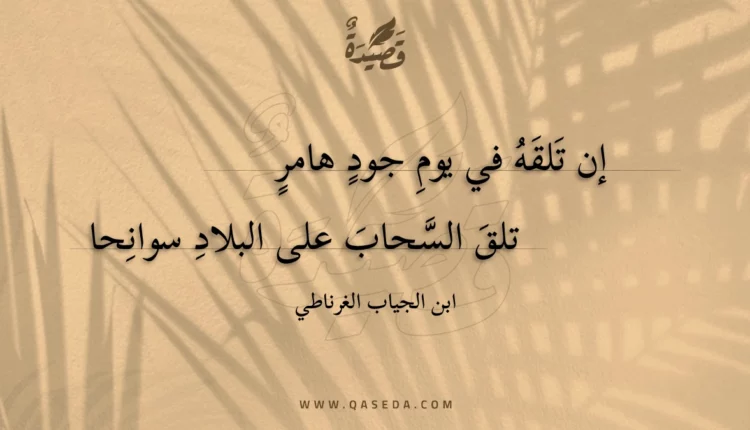 قَصِيْدَةٌ
إن تَلقَهُ في يومِ جودٍ هامرٍ
تلقَ السَّحابَ على البلادِ سوانِحا
ابن الجياب الغرناطي
WWW.QASEDA.COM